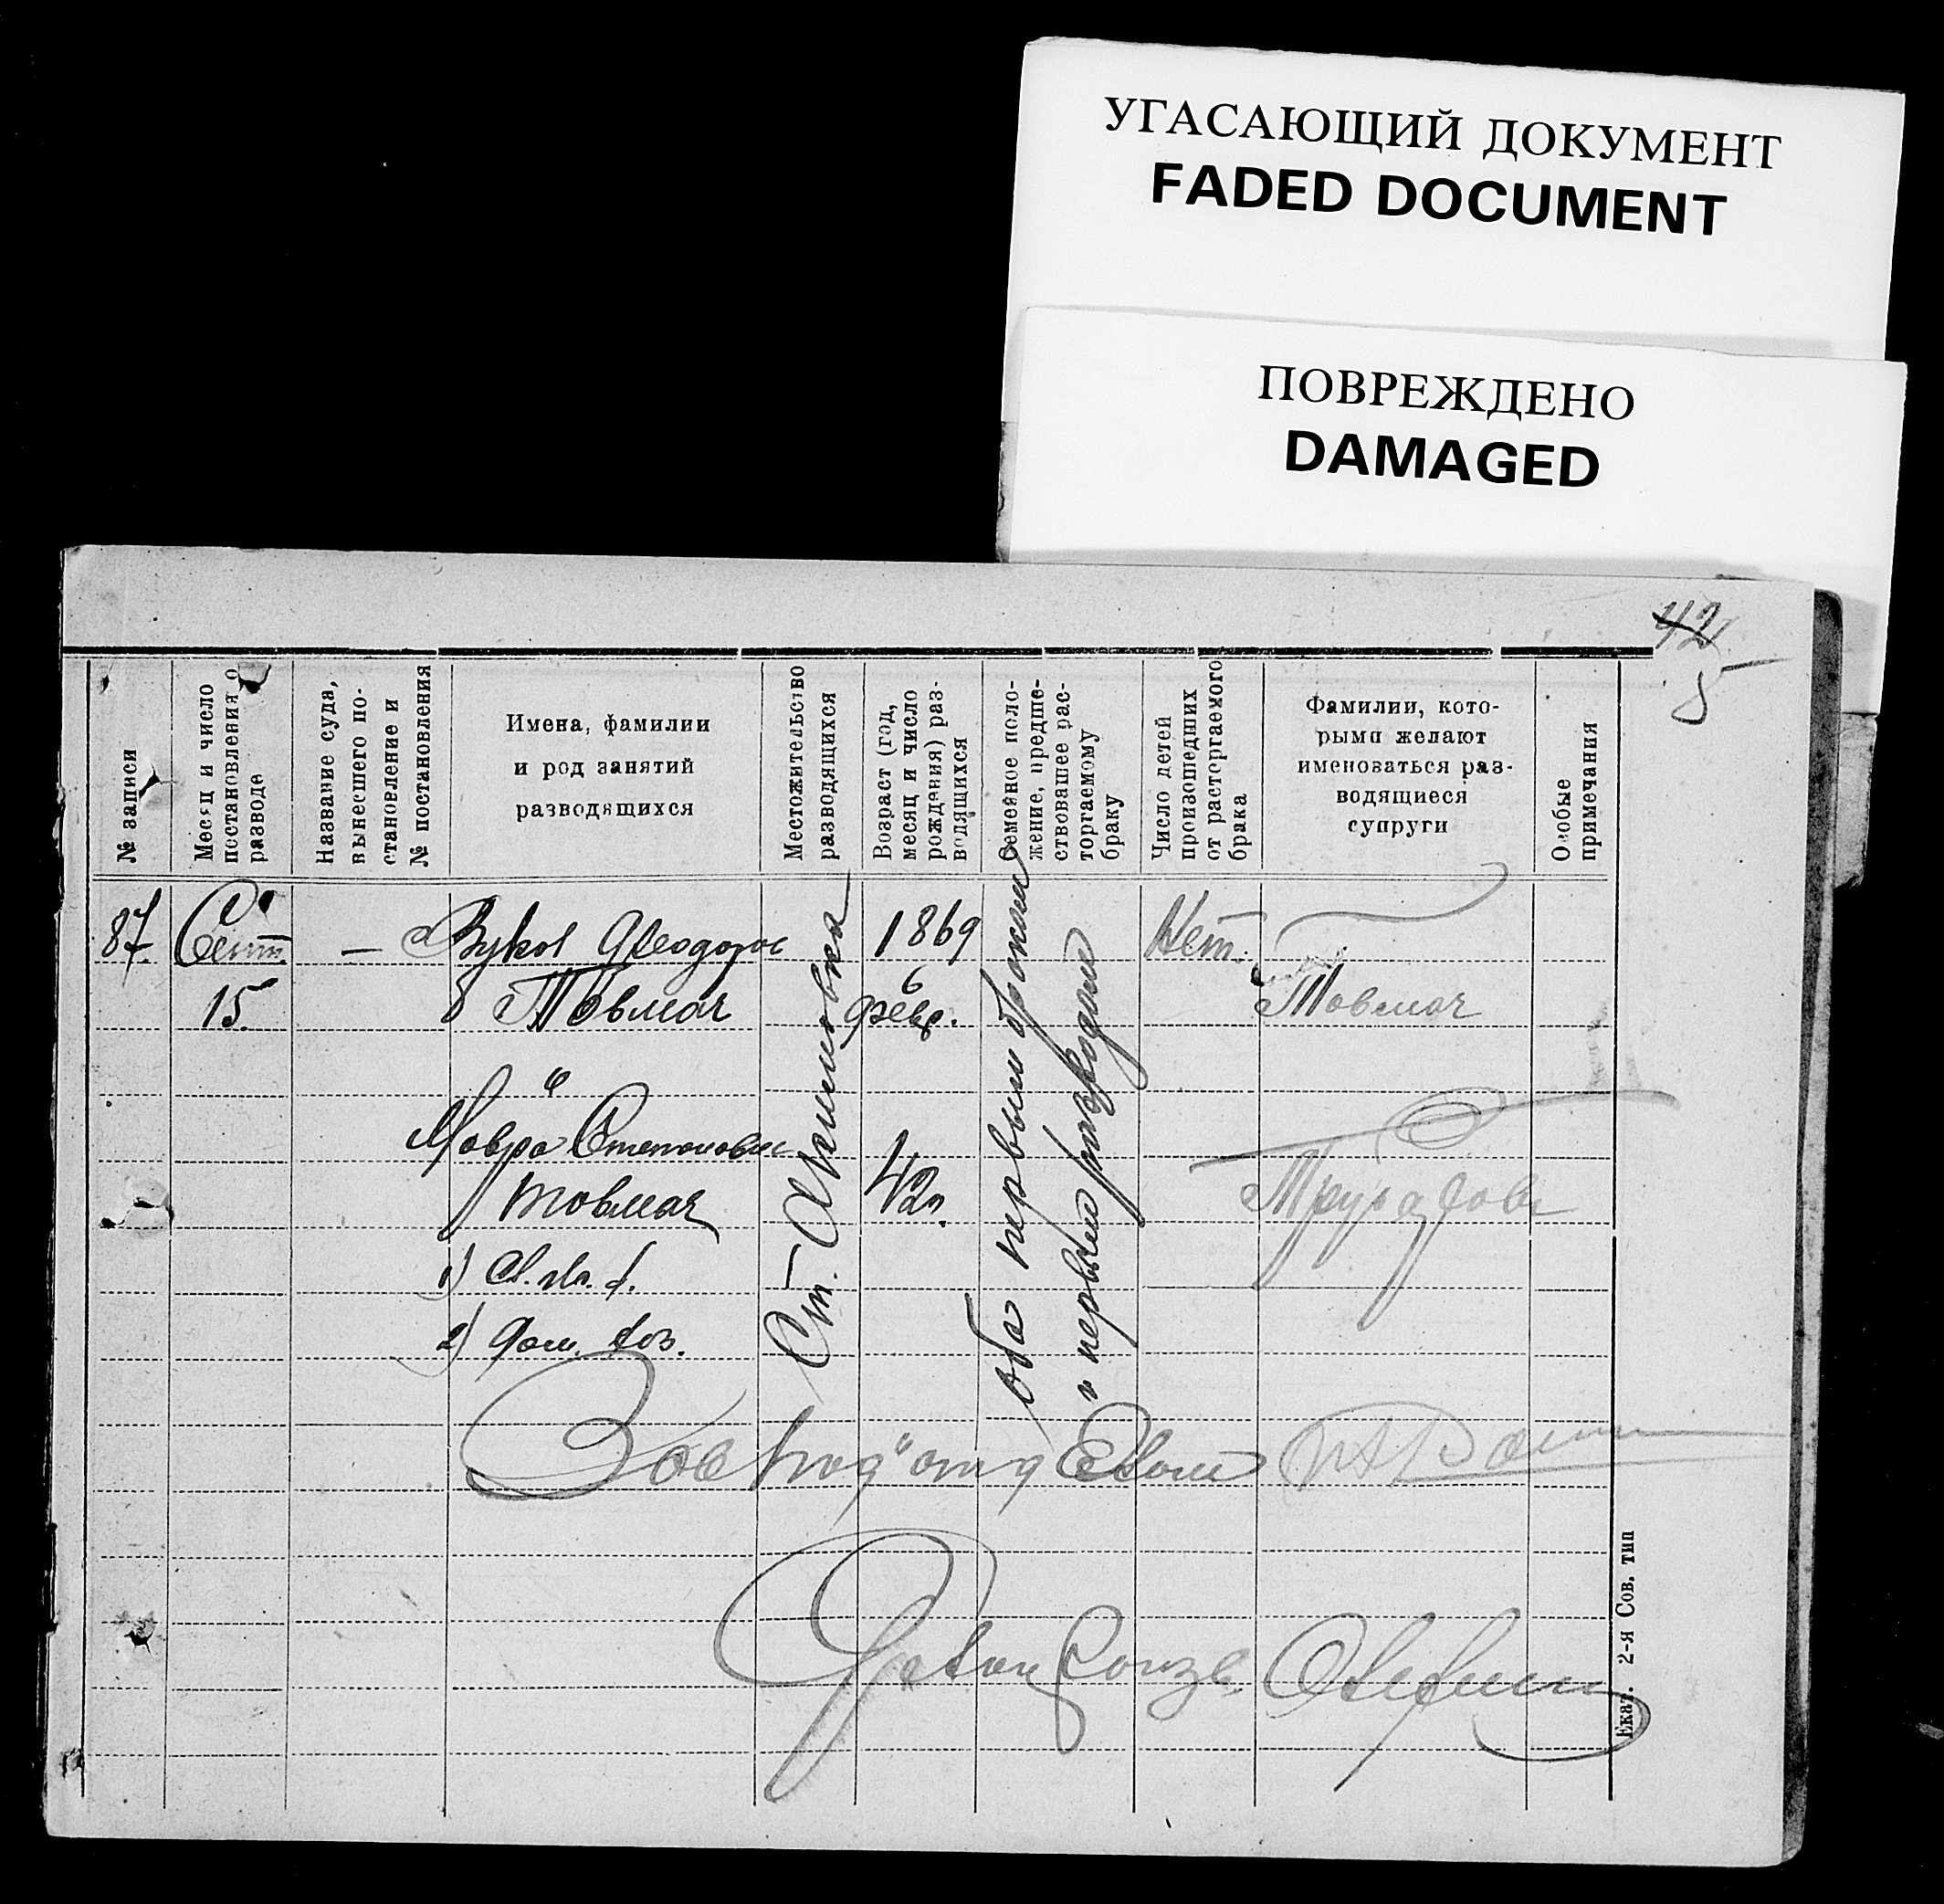 УГАСАЮЩИЙ ДОКУМЕНТ
FADED DOCUMENT
ПОВРЕЖДЕНО
DAMAGED
42
5
№ записи
Месяц и число
постановления о
разводе
Название суда,
вынесшего по-
становление и
№ постановления
Имена, фамилии
и род занятий
разводящихся
Местожительство
разводящихся
Возраст (год,
месяц и число
рождения) раз-
водящихся
Семейное поло-
жение, предше-
ствовавшее рас-
торгаемому
браку
Число детей
происшедших
от расторгаемого
брака
Фамилии, кото-
рыми желают
именоваться раз-
водящиеся
супруги
Особые
примечания
87
Сент.
15.
—
Федоров
Товмач
и
Мавра Степановна
Товмач
1)
2) дом. хоз.
Ст.
1869
6
февр.
42 л.
оба первым браком
и первым разводом
Нет.
Товмач
Зав под отд
Екат. 2-я Сов. тип